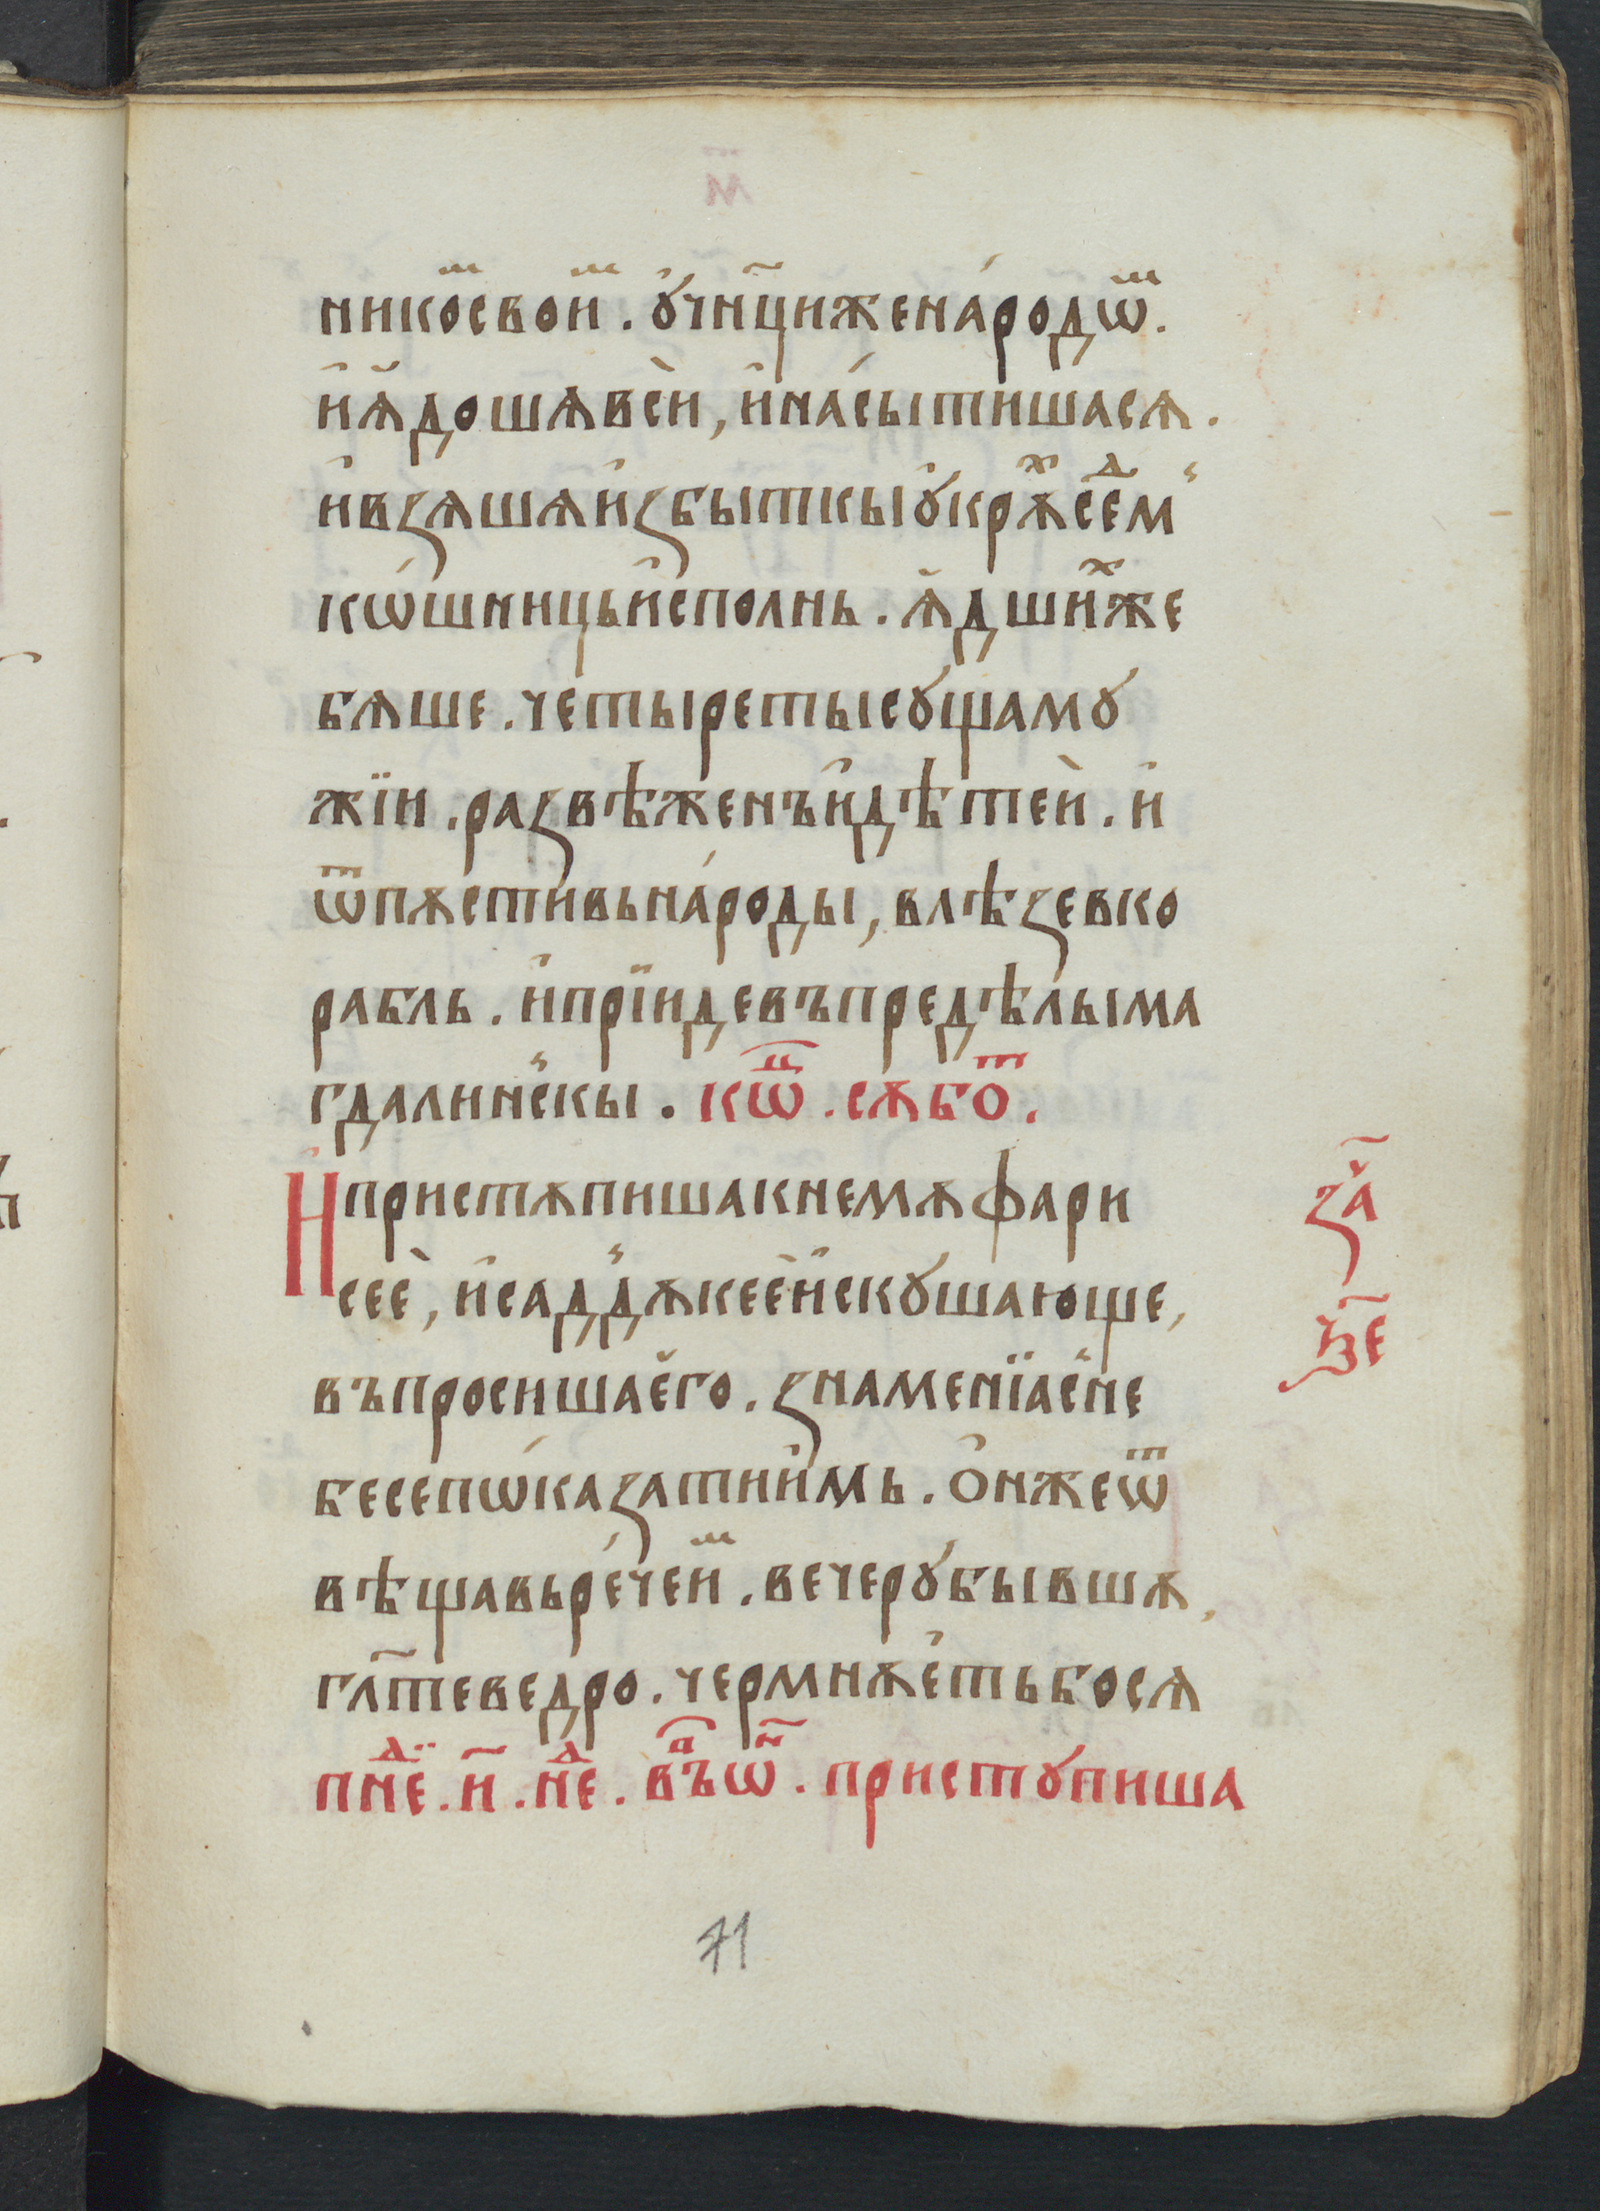 никоⷨ свои́ⷨ. ᲂу҆чн҃ци же наро́дѡⷨ.
и҆ ꙗ҆дошѧ всѝ, и҆ насы́тишасѧ.
и҆ взѧшѧ и҆збыткы ᲂу҆крꙋ̑ⷯ се́ⷣм
кѡ́шницъ и҆сполнь. ꙗ҆дши́ⷯ же
бѧше. четыре тысꙋща мꙋ
жїи. развѣ женъ и҆ дѣтеѝ. и҆
ѿпꙋстивь наро́ды, влѣзе в ко
рабль. и҆ прїиде въ предѣлы ма
гдалинскы. кѡⷰ҇. сꙋбоⷮ.
И҆ пристꙋпиша к немꙋ фари
сеѐ, и҆ саддꙋкеѐ и҆скꙋшающе,
въпросиша е҆го. знаменїа с не
бесе пѡ́казати и҆мь. Ѻ҆н же ѿ
вѣщавь ре́че и҆ⷨ. вечерꙋ́ бывшꙋ,
гл҃те ведро. чермнꙋе҆ть бо сѧ
пнеⷣ. и҃. неⷣ. въⷫ҇ѡⷩ҇. пристꙋпиша
за҃
ѯ҃е
71